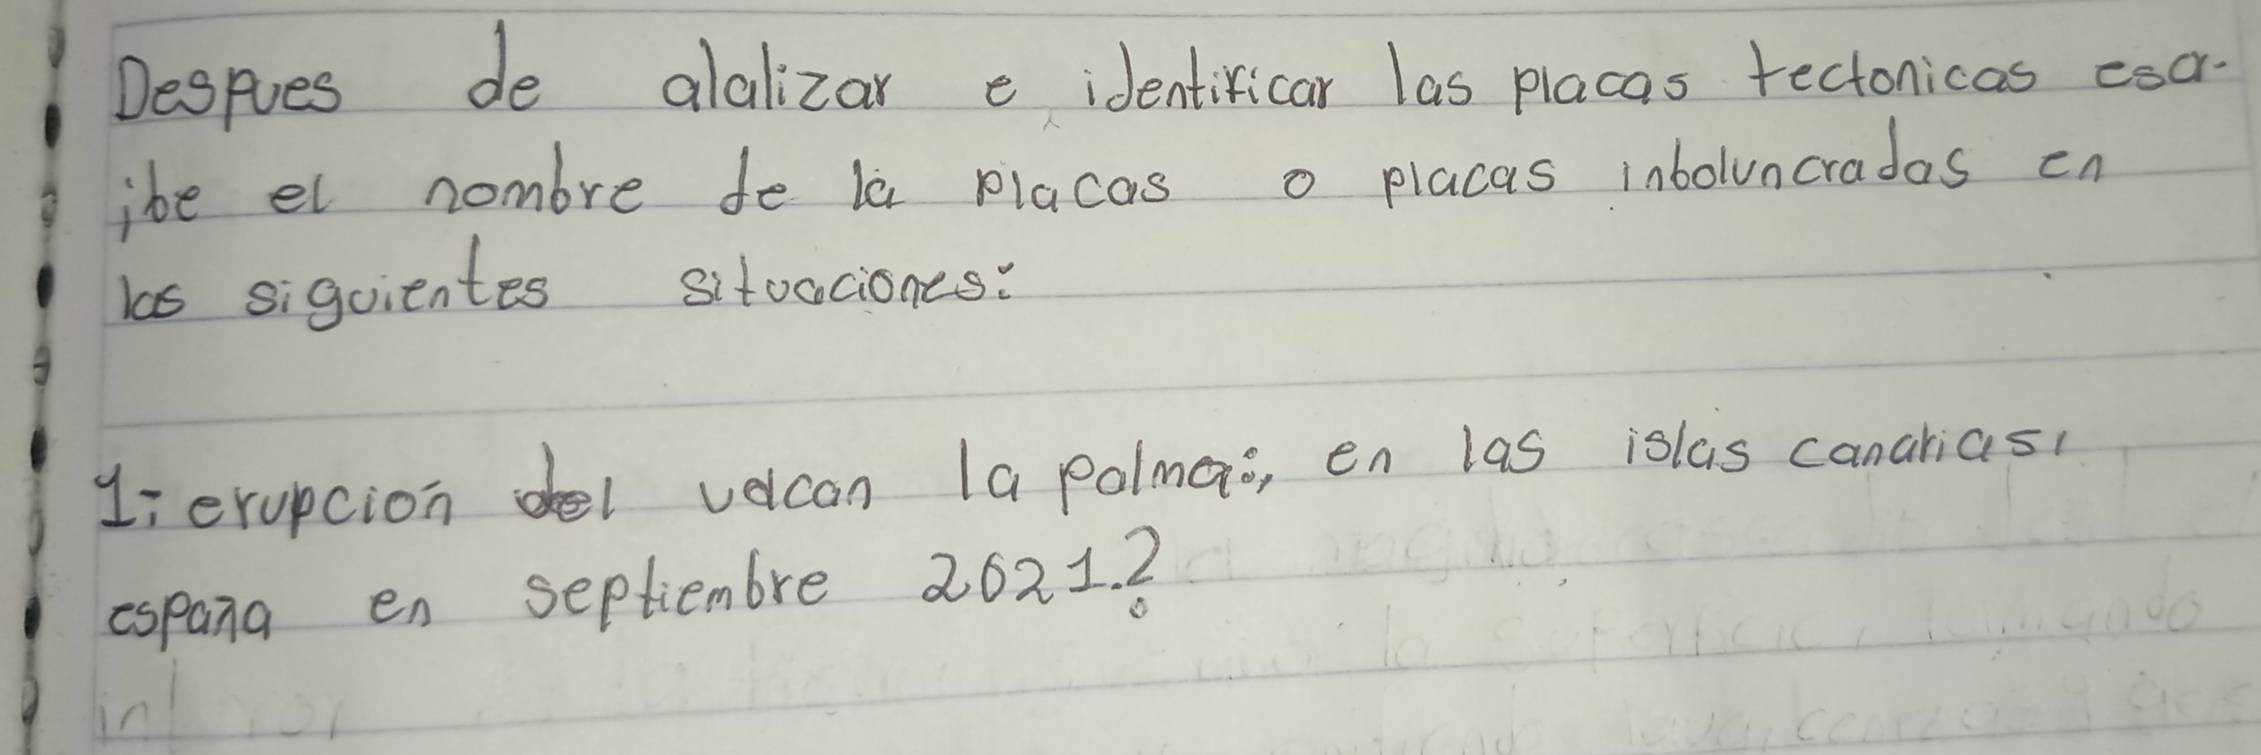 Despues de alalizar e identificar las placas tectonicas escr-
ibe el nombre de la placas o placas inboluncradas en
las siguientes situaciones:
1: erupcion del volcan la palma:, en las islas canarias,
españa en septiembre 2021.?